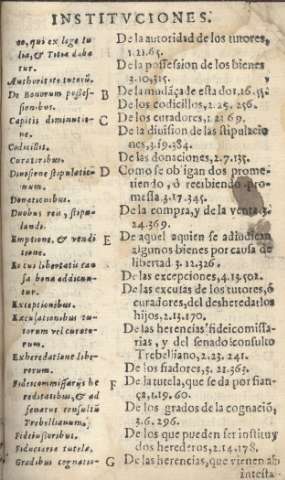 INSTITVCIONES.
eo, qui ex lege Iu
lia, & Titia daba
tur.
Authoritate tutorũ.
De Bonorum possessionibus.
Capitis diminutione.
Codicillis.
Curatoribus.
Diuisione stipulationum.
Donationibus.
Duobus reis, stipulandi.
Emptione, & venditione.
Exceptionibus.
Excusationibus tutorum vel curatorum.
Exheredatione liberorum.
Fideicommissarijs hereditatibus, & ad senatus consultũ Trebellianum.
Fideiussoribus.
Fiduciaria tutela.
Gradibus cognatio-
De la autoridad de los tutores,
1.21.65.
De la possession de los bienes
3.10.315.
B
C
De los codicillos, 2.25. 256.
De los curadores, 1.23 69.
De la diuision de las stipulacio
nes, 3.19.384.
De las donaciones, 2.7.135.
D
Como se obligan dos prome-
tiendo, ó recibiendo pro-
messa 3.17.345.
De la compra, y de la venta 3.
24.369.
E
De aquel a quien se adiudican
algunos bienes por causa de
libertad 3.12.326.
De las excepciones, 4.13.502.
De las escusas de los tutores, ó
curadores, del desheredar los
hijos, 2.13.170.
De las herencias fideicomissa-
rias, y del senado consulto
Trebelliano, 2.23. 241.
De los fiadores, 3. 21.363.
F
De la tutela, que se da por fian-
ça, 1.19.60.
De los grados de la cognació,
3.6. 296.
De los que pueden ser instituy
dos herederos, 2.14.178.
G
De las herencias, que vienen ab
intesta-